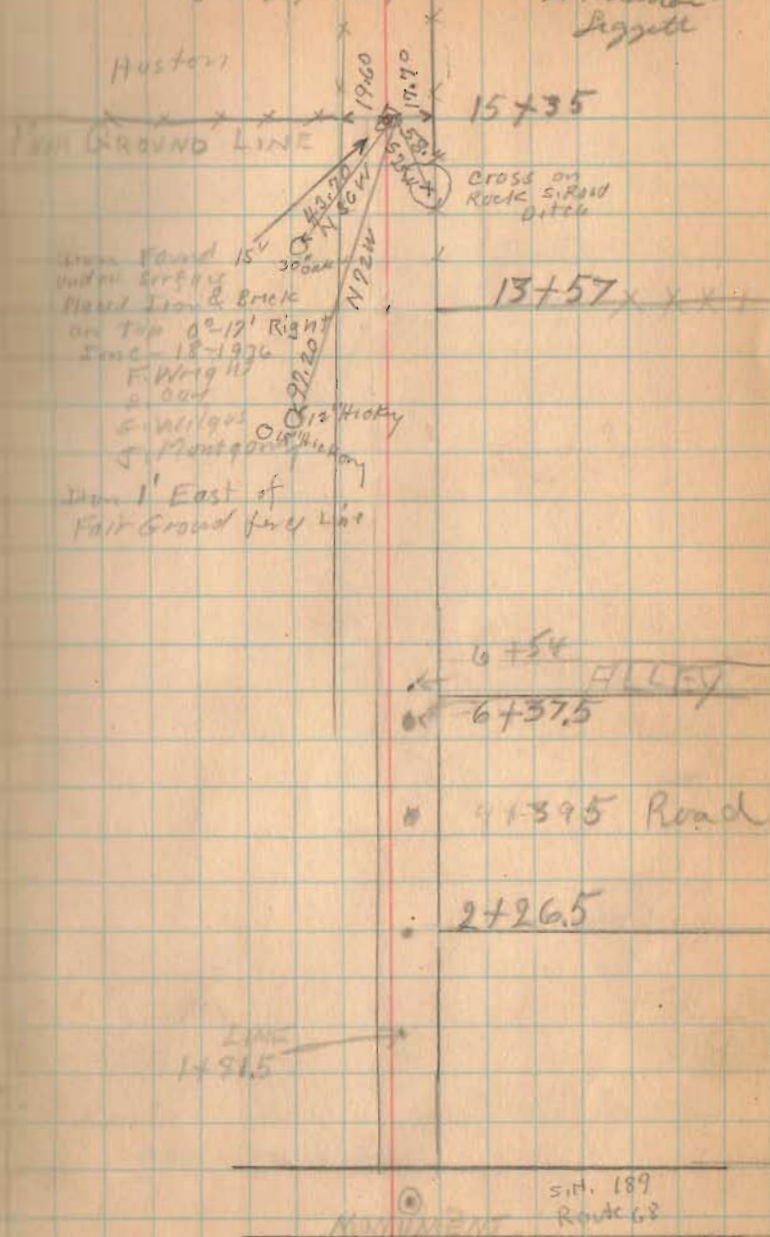 Leggett
Huston
19.60
17.70
15+35
GROUND LINE
58.4
43.70
N 36 W
Cross on
Rock S. Road
Ditch
15"
30" Oak
N 72 W
Found
under Surface
Placed Iron & Brick
on Top 0°-17' Right
June - 18-1936
F. Wright
J. Montgomery
13+57
97.20
12" Hickry
15" Hickory
Iron 1' East of
Fair Ground fence Line
6+54
ALLEY
6+37.5
4+395 Road
2+26.5
LINE
1+81.5
S.H. 189
Route 68
MONUMENT